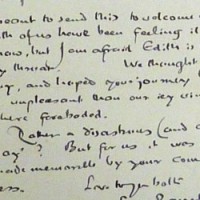 meant to send this to welcome
th of us have been feeling il
now, but I am afraid Edith is
y throat. We thought
y, and hoped your journey
unpleasant than our icy win
here foreboded.
Rather a disastrous (and
oay? But for us it was
made memorable by your com
ers.
Love to you both